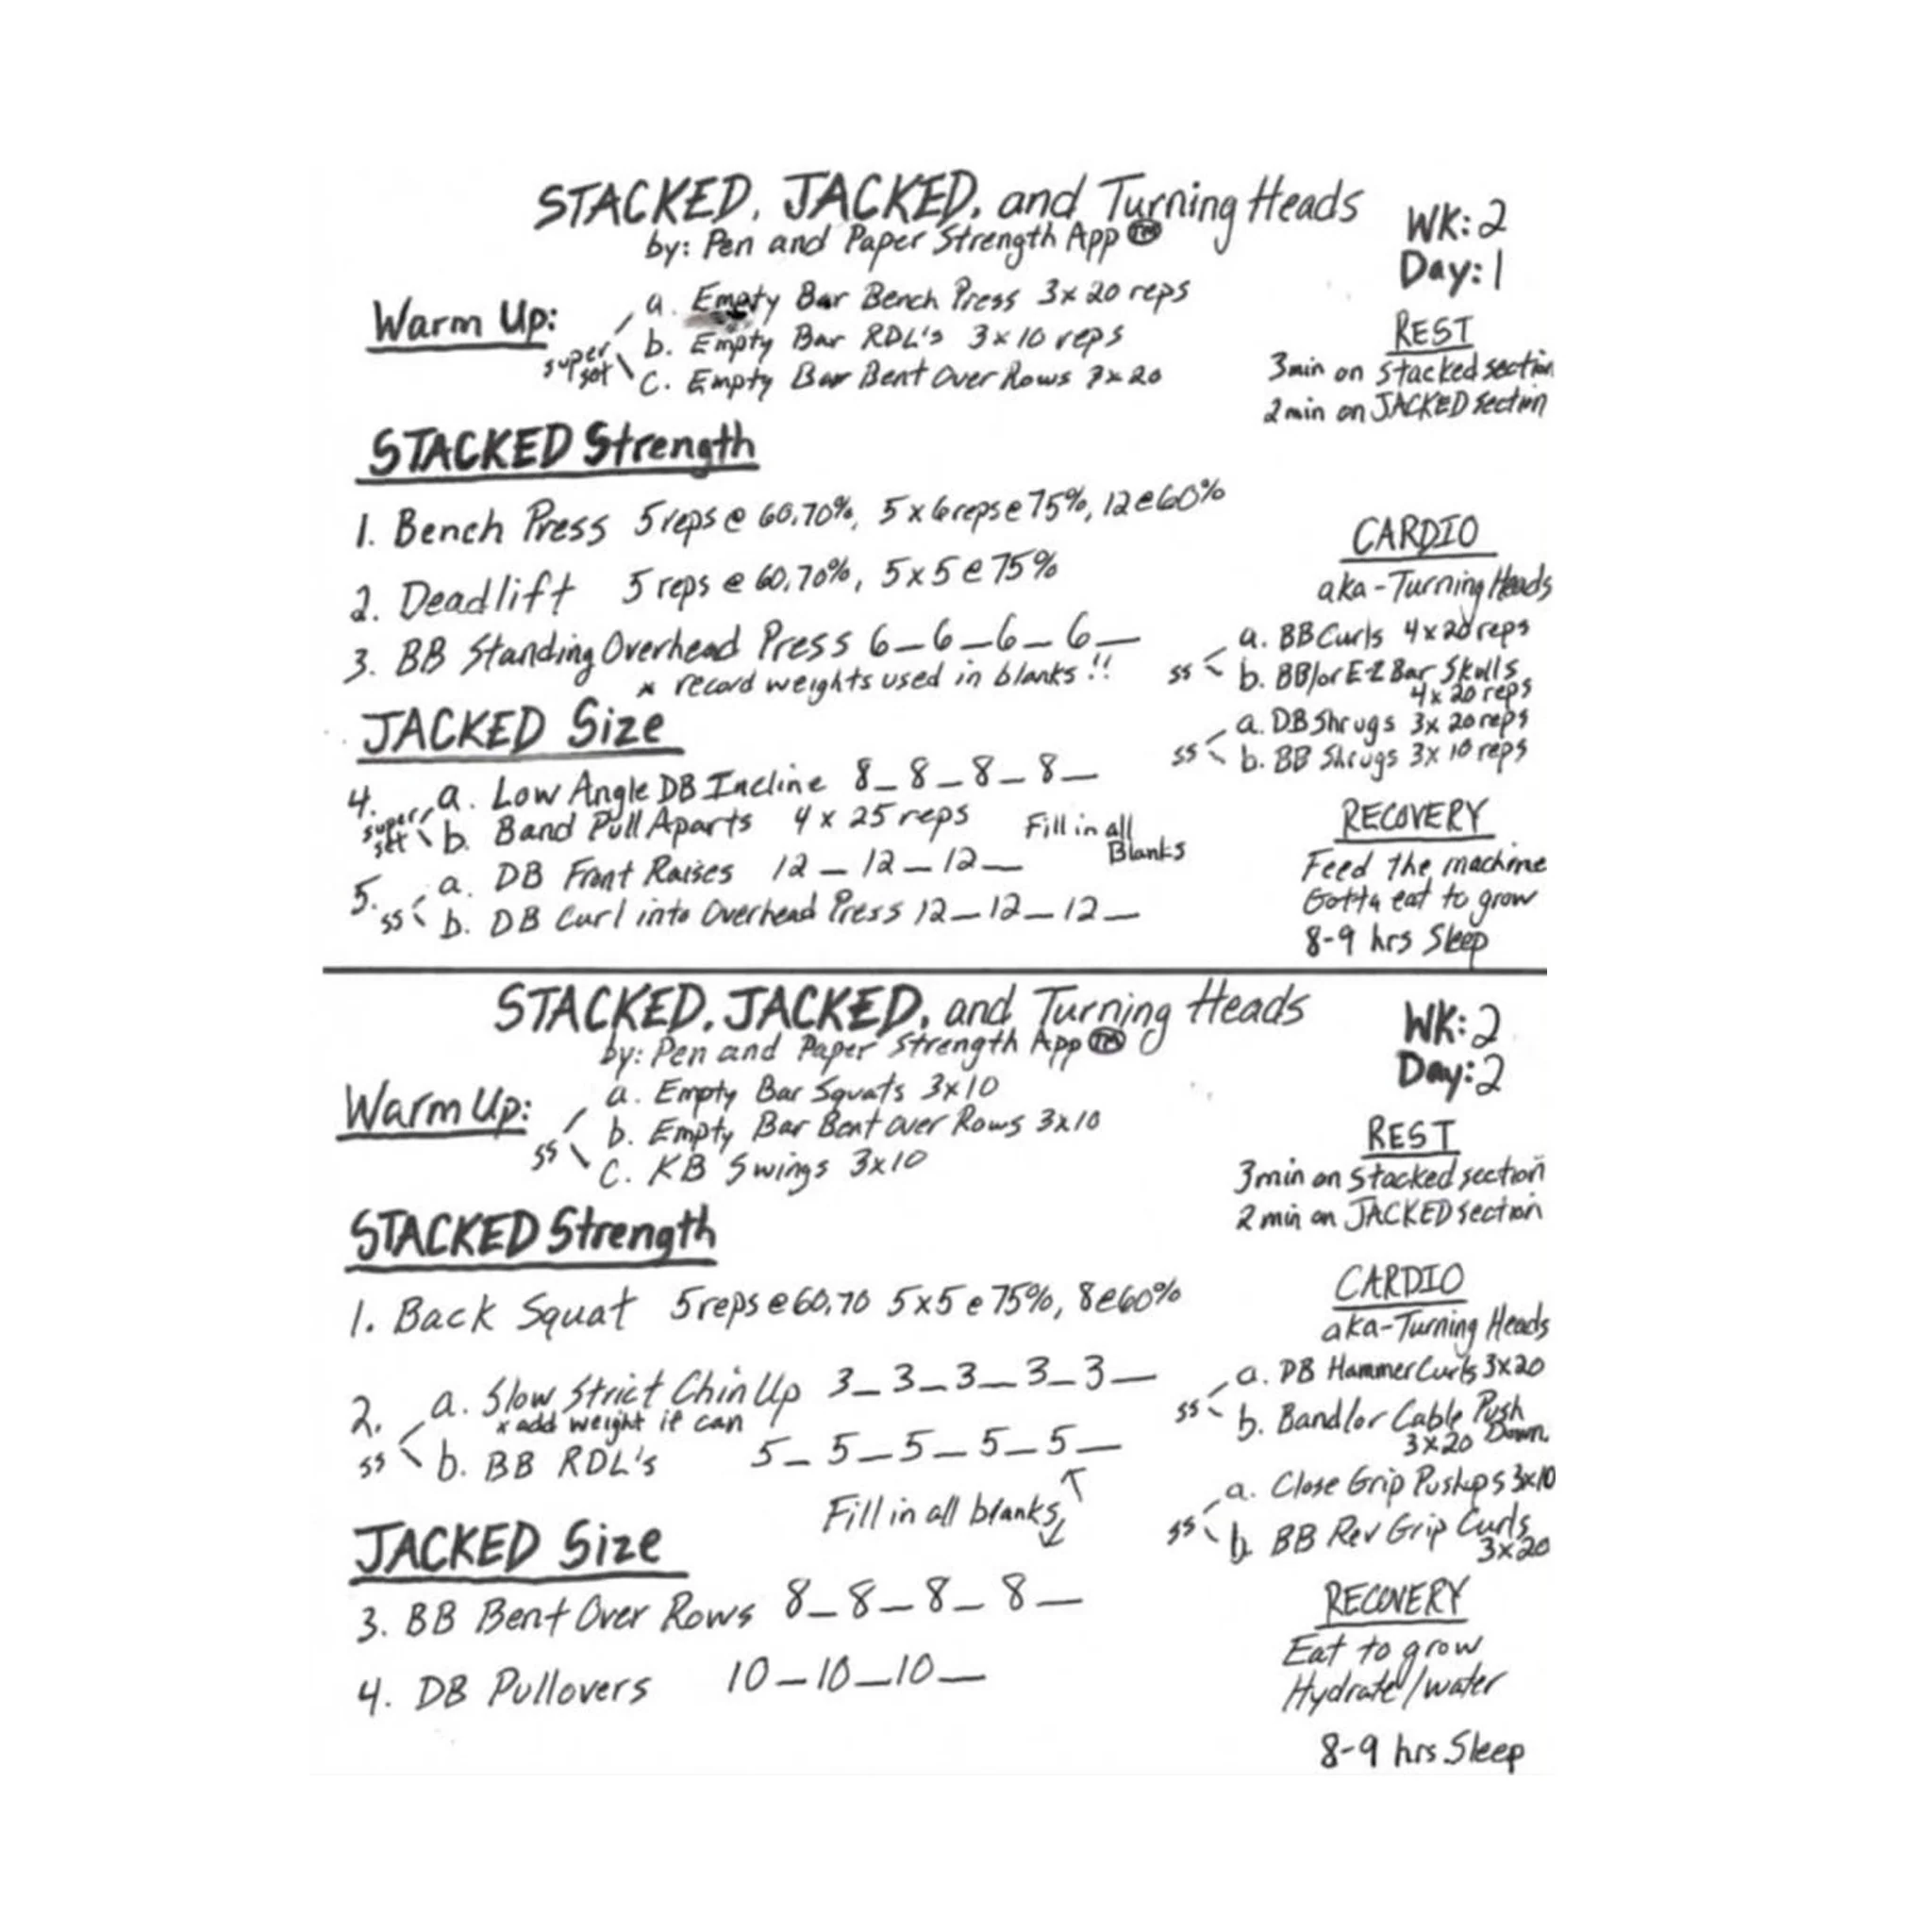 STACKED, JACKED, and Turning Heads
by: Pen and Paper Strength App TM
WK: 2
Day: 1
Warm Up:
super set
a. Empty Bar Bench Press 3x20 reps
b. Empty Bar RDL's 3x10 reps
c. Empty Bar Bent Over Rows 3x20
REST
3min on Stacked section
2min on JACKED section
STACKED Strength
1. Bench Press 5reps @ 60,70%, 5x6reps@75%, 12@60%
2. Deadlift 5 reps @ 60,70%, 5x5@75%
3. BB Standing Overhead Press 6_6_6_6_
* record weights used in blanks!!
JACKED Size
4. super set
a. Low Angle DB Incline 8_8_8_8_
b. Band Pull Aparts 4x25 reps
Fill in all
Blanks
5. ss
a. DB Front Raises 12_12_12_
b. DB Curl into Overhead Press 12_12_12_
CARDIO
aka-Turning Heads
ss
a. BB Curls 4x20 reps
b. BB/or E-Z Bar Skulls
4x20 reps
ss
a. DB Shrugs 3x20 reps
b. BB Shrugs 3x10 reps
RECOVERY
Feed the machine
Gotta eat to grow
8-9 hrs Sleep
STACKED, JACKED, and Turning Heads
by: Pen and Paper Strength App TM
WK: 2
Day: 2
Warm Up:
ss
a. Empty Bar Squats 3x10
b. Empty Bar Bent over Rows 3x10
c. KB Swings 3x10
REST
3min on Stacked section
2min on JACKED section
STACKED Strength
1. Back Squat 5reps@60,70 5x5@75%, 8@60%
2. ss
a. Slow Strict Chin Up 3_3_3_3_3_
* add weight if can
b. BB RDL's 5_5_5_5_5_
Fill in all blanks
JACKED Size
3. BB Bent Over Rows 8_8_8_8_
4. DB Pullovers 10_10_10_
CARDIO
aka-Turning Heads
ss
a. DB Hammer Curls 3x20
b. Band/or Cable Push
Down
3x20
ss
a. Close Grip Pushups 3x10
b. BB Rev Grip Curls
3x20
RECOVERY
Eat to grow
Hydrate/water
8-9 hrs Sleep